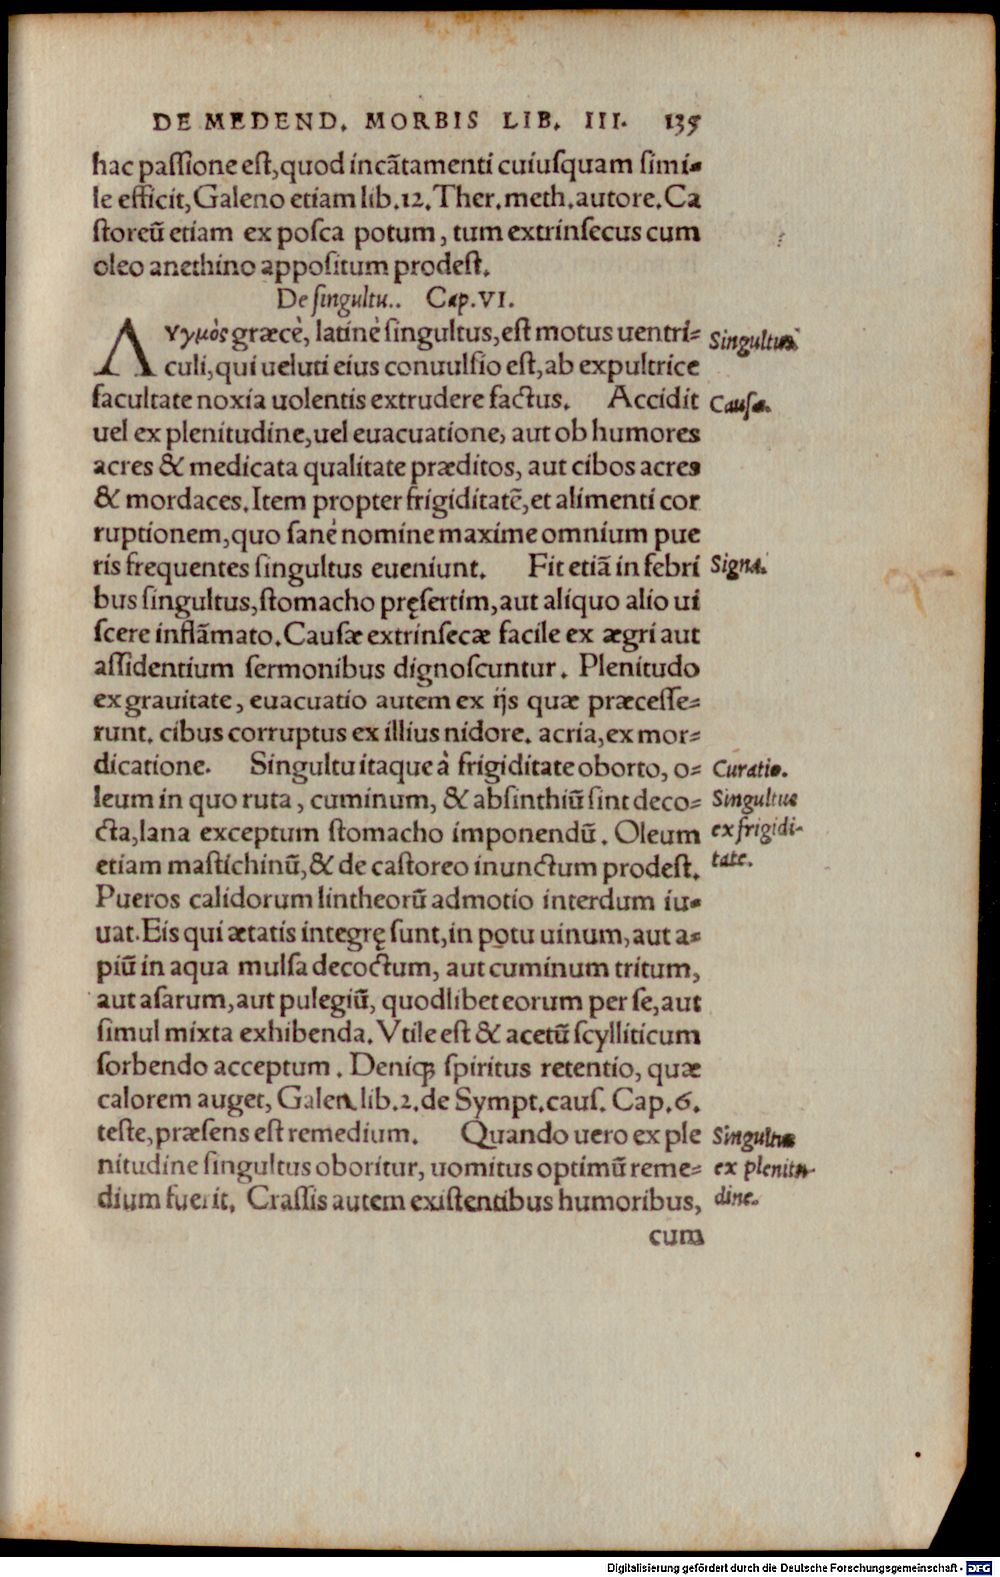 DE MEDEND. MORBIS LIB. III. 135
hac passione est, quod incātamenti cuiusquam simi-
le efficit, Galeno etiam lib.12. Ther. meth. autore. Ca
storeū etiam ex posca potum, tum extrinsecus cum
oleo anethino appositum prodest.
De singultu.. Cap. VI.
Λυγμὸς græcè, latinè singultus, est motus uentri-
culi, qui ueluti eius conuulsio est, ab expultrice
facultate noxia uolentis extrudere factus. Accidit
uel ex plenitudine, uel euacuatione, aut ob humores
acres & medicata qualitate præditos, aut cibos acres
& mordaces. Item propter frigiditatē, et alimenti cor
ruptionem, quo sanè nomine maxime omnium pue
ris frequentes singultus eueniunt. Fit etiā in febri
bus singultus, stomacho pręsertim, aut aliquo alio ui
scere inflāmato. Causæ extrinsecæ facile ex ægri aut
assidentium sermonibus dignoscuntur. Plenitudo
ex grauitate, euacuatio autem ex ijs quæ præcesse-
runt. cibus corruptus ex illius nidore. acria, ex mor-
dicatione. Singultu itaque à frigiditate oborto, o-
leum in quo ruta, cuminum, & absinthiū sint deco-
cta, lana exceptum stomacho imponendū. Oleum
etiam mastichinū, & de castoreo inunctum prodest.
Pueros calidorum lintheorū admotio interdum iu-
uat. Eis qui ætatis integrę sunt, in potu uinum, aut a-
piū in aqua mulsa decoctum, aut cuminum tritum,
aut asarum, aut pulegiū, quodlibet eorum per se, aut
simul mixta exhibenda. Vtile est & acetū scylliticum
sorbendo acceptum. Deniqꝫ spiritus retentio, quæ
calorem auget, Galen. lib.2. de Sympt. caus. Cap.6.
teste, præsens est remedium. Quando uero ex ple
nitudine singultus oboritur, uomitus optimū reme-
dium fuerit. Crassis autem existentibus humoribus,
cum
Singultus
Causæ.
Signa.
Curatio.
Singultus
ex frigidi-
tate.
Singultus
ex plenitu-
dine.
Digitalisierung gefördert durch die Deutsche Forschungsgemeinschaft - DFG